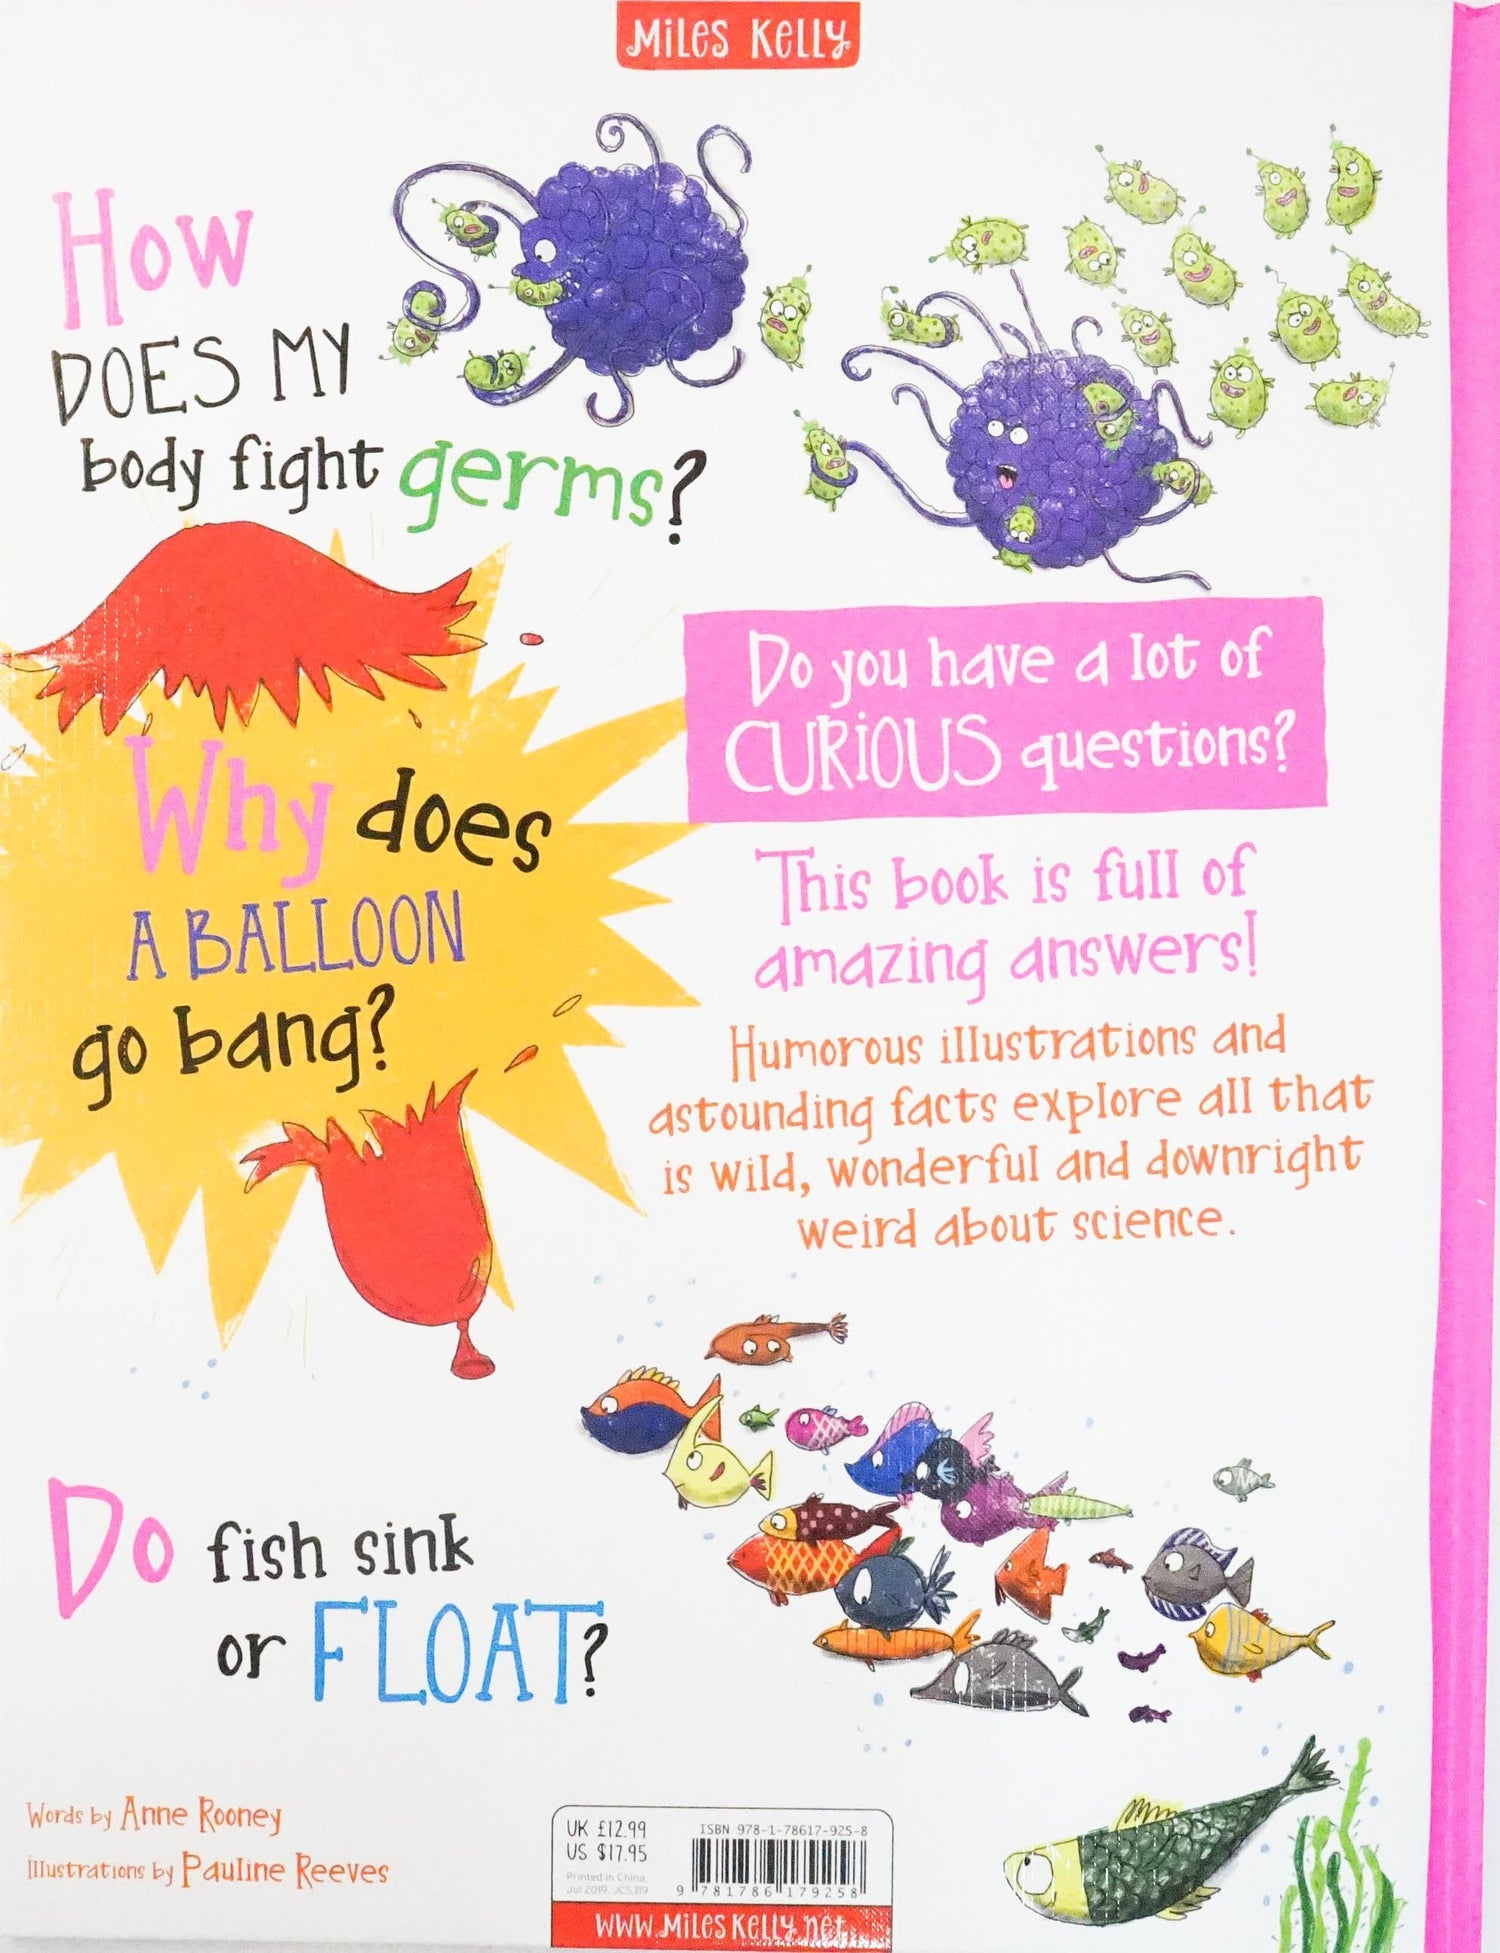 Miles Kelly
How
DOES MY
body fight germs?
Why does
A BALLOON
go bang?
Do you have a lot of
CURIOUS questions?
This book is full of
amazing answers!
Humorous illustrations and
astounding facts explore all that
is wild, wonderful and downright
weird about science.
Do fish sink
or FLOAT?
Words by Anne Rooney
Illustrations by Pauline Reeves
UK £12.99
US $17.95
Printed in China,
Jul 2019, JC5319
ISBN 978-1-78617-925-8
9 781786 179258
www.MilesKelly.net